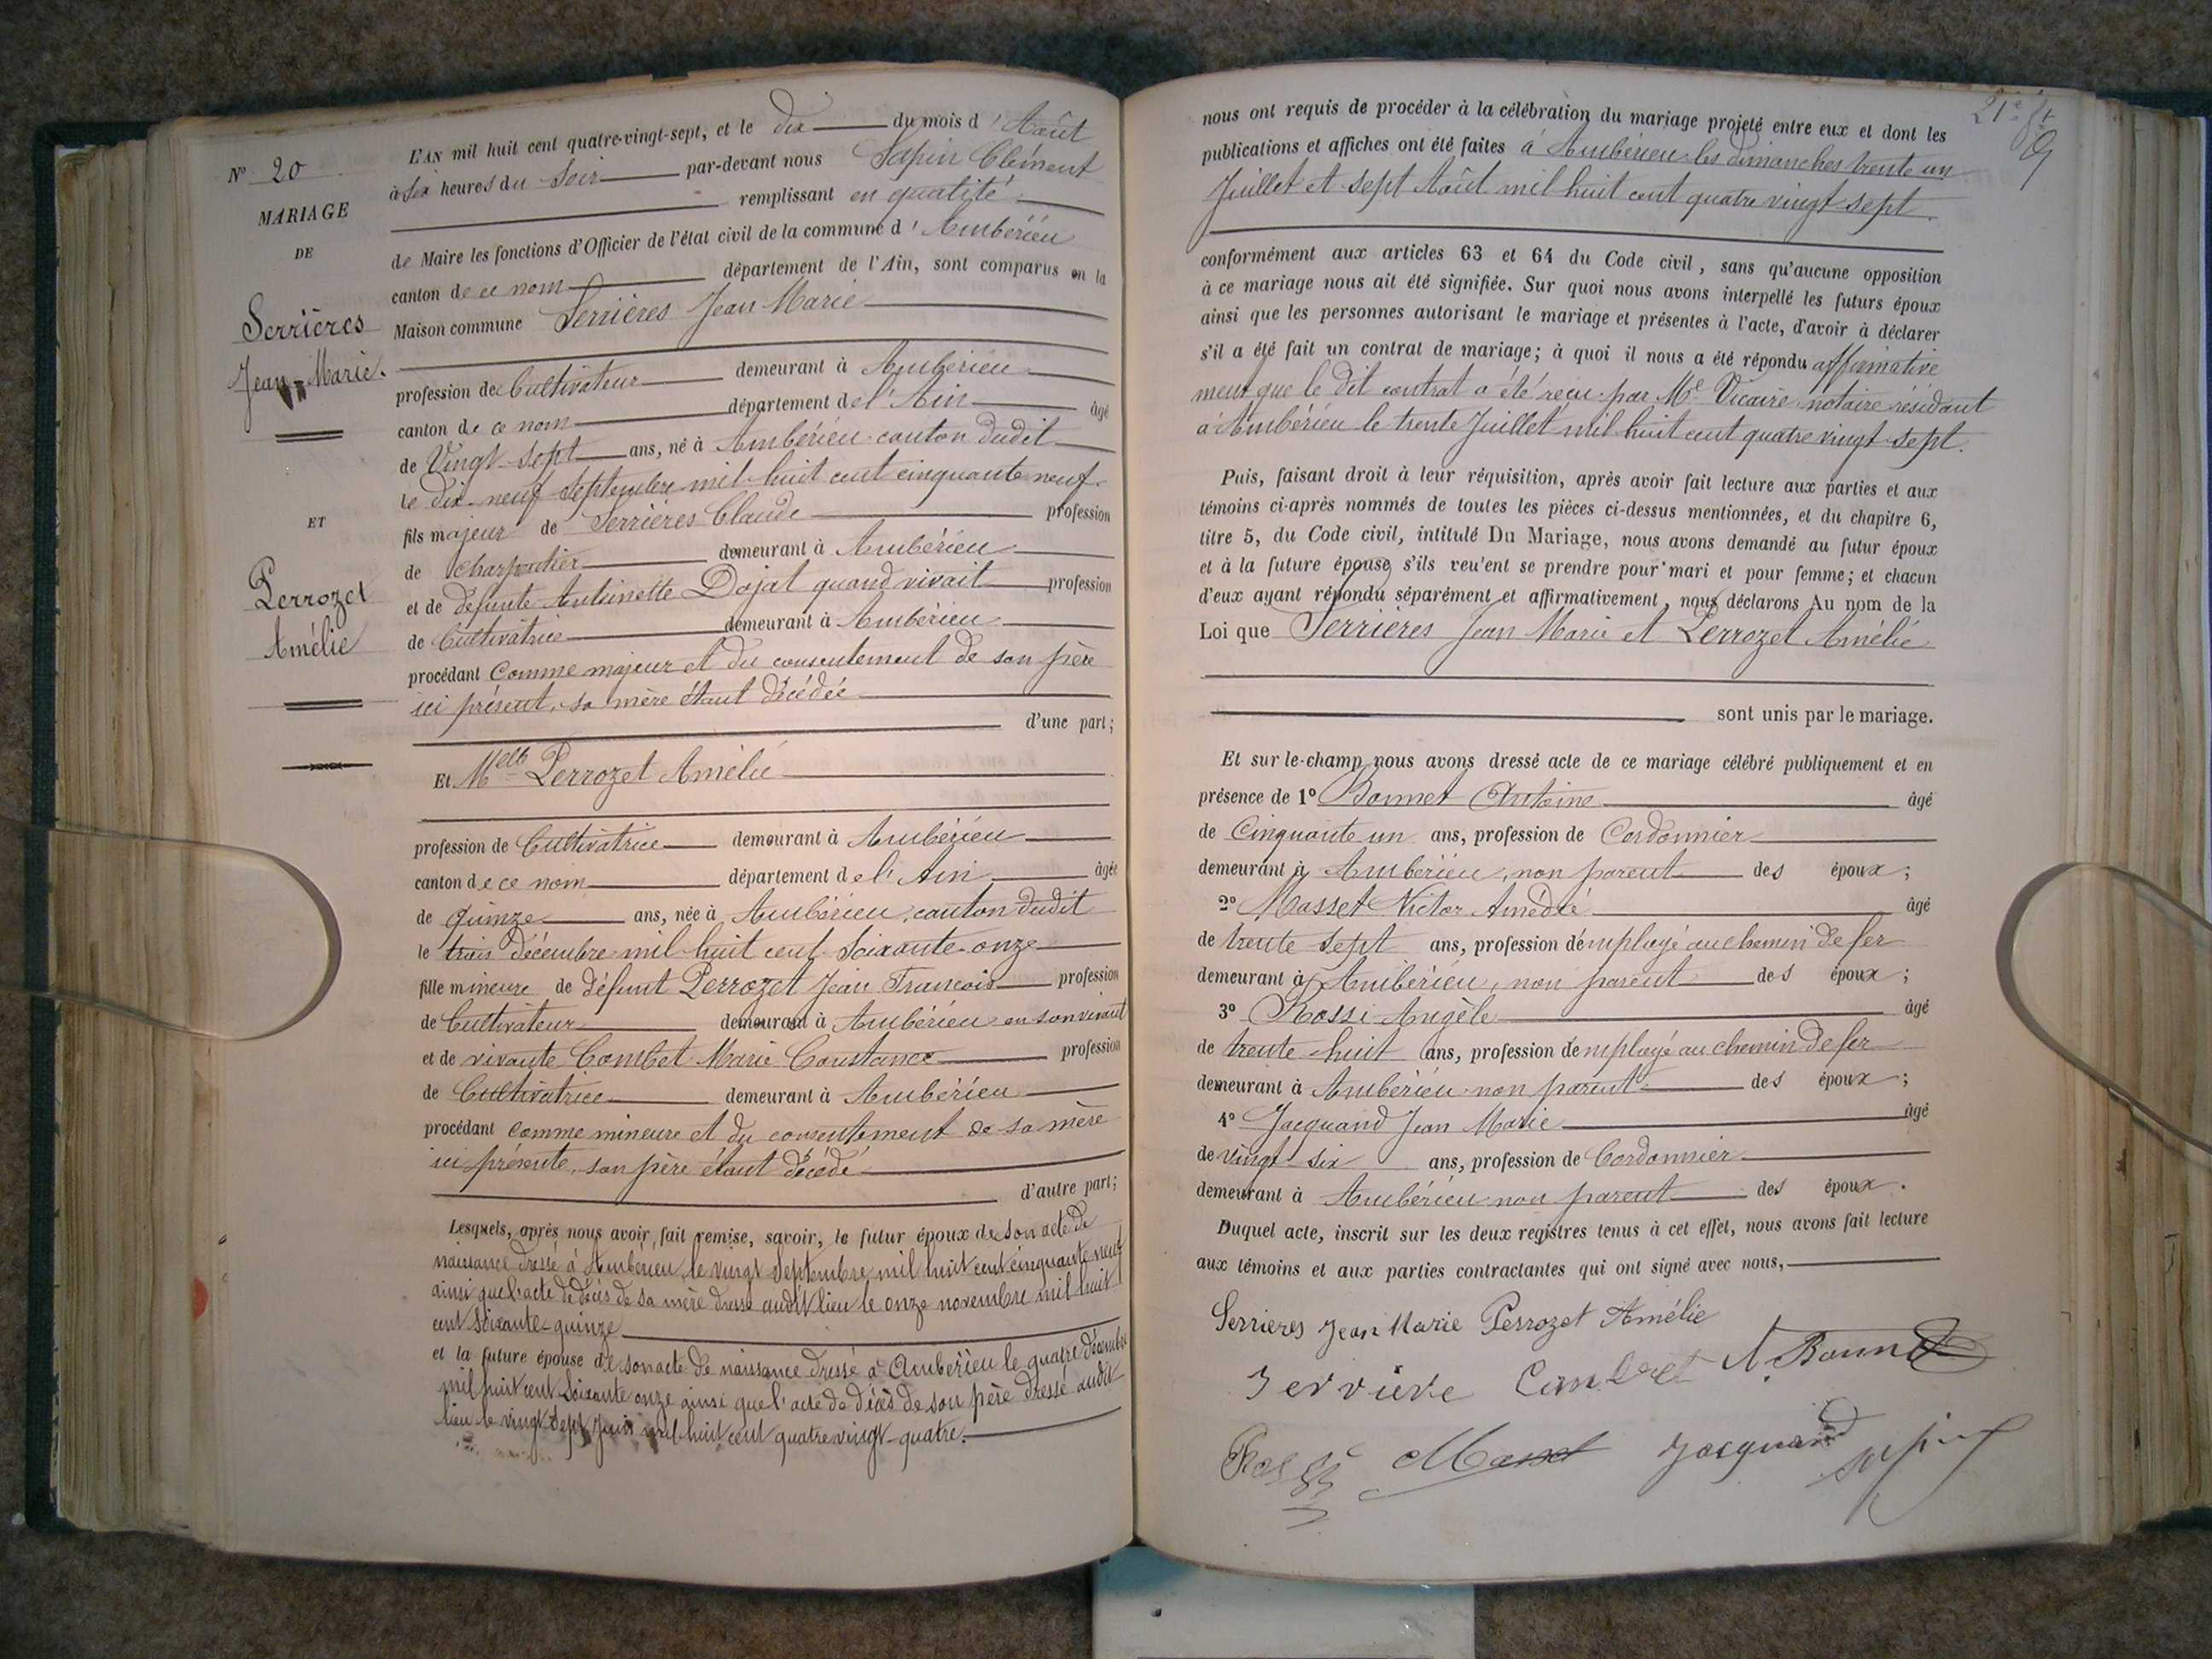 N° 20
MARIAGE
DE
Serrières
Jean-Marie.
ET
Perrozet
Amélie
L'AN mil huit cent quatre-vingt-sept, et le dix du mois d'Août
à six heures du Soir par-devant nous Sapin Clément
remplissant en qualité
de Maire les fonctions d'Officier de l'état civil de la commune d'Ambérieu
canton de ce nom département de l'Ain, sont comparus en la
Maison commune Serrières Jean Marie
profession de Cultivateur demeurant à Ambérieu
canton de ce nom département de l'Ain âgé
de Vingt-sept ans, né à Ambérieu canton dudit
le dix-neuf Septembre mil huit cent cinquante neuf
fils majeur de Serrières Claude profession
de charpentier demeurant à Ambérieu
et de défunte Antoinette Dojat quand vivait profession
de Cultivatrice demeurant à Ambérieu
procédant comme majeur et du consentement de son père
ici présent, sa mère étant décédée
d'une part;
Et Melle Perrozet Amélie
profession de Cultivatrice demeurant à Ambérieu
canton de ce nom département de l'Ain âgée
de quinze ans, née à Ambérieu, canton dudit
le trois décembre mil huit cent soixante-onze
fille mineure de défunt Perrozet Jean François profession
de Cultivateur demeurant à Ambérieu en son vivant
et de vivante Combet Marie Constance profession
de Cultivatrice demeurant à Ambérieu
procédant comme mineure et du consentement de sa mère
ici présente, son père étant décédé
d'autre part;
Lesquels, après nous avoir fait remise, savoir, le futur époux de son acte de
naissance dressé à Ambérieu le vingt Septembre mil huit cent cinquante neuf
ainsi que l'acte de décès de sa mère dressé audit lieu le onze novembre mil huit
cent soixante-quinze
et la future épouse de son acte de naissance dressé à Ambérieu le quatre décembre
mil huit cent soixante onze ainsi que l'acte de décès de son père dressé audit
lieu le vingt sept Juin mil huit cent quatre vingt-quatre.
21e ft
nous ont requis de procéder à la célébration du mariage projeté entre eux et dont les
publications et affiches ont été faites à Ambérieu les dimanches trente un
Juillet et sept Août mil huit cent quatre vingt sept.
conformément aux articles 63 et 64 du Code civil, sans qu'aucune opposition
à ce mariage nous ait été signifiée. Sur quoi nous avons interpellé les futurs époux
ainsi que les personnes autorisant le mariage et présentes à l'acte, d'avoir à déclarer
s'il a été fait un contrat de mariage; à quoi il nous a été répondu affirmative
ment que le dit contrat a été reçu par Me Vicaire notaire résidant
à Ambérieu le trente Juillet mil huit cent quatre vingt-sept.
Puis, faisant droit à leur réquisition, après avoir fait lecture aux parties et aux
témoins ci-après nommés de toutes les pièces ci-dessus mentionnées, et du chapitre 6,
titre 5, du Code civil, intitulé Du Mariage, nous avons demandé au futur époux
et à la future épouse s'ils veu'ent se prendre pour mari et pour femme; et chacun
d'eux ayant répondu séparément et affirmativement, nous déclarons Au nom de la
Loi que Serrières Jean Marie et Perrozet Amélie
sont unis par le mariage.
Et sur-le-champ nous avons dressé acte de ce mariage célébré publiquement et en
présence de 1° Bonnet Antoine âgé
de Cinquante un ans, profession de Cordonnier
demeurant à Ambérieu, non parent des époux;
2° Masset Victor Amédée âgé
de trente sept ans, profession d'employé au chemin de fer
demeurant à Ambérieu, non parent des époux;
3° Rossi Angèle âgé
de trente-huit ans, profession d'employé au chemin de fer
demeurant à Ambérieu non parent des époux;
4° Jacquand Jean Marie âgé
de vingt-six ans, profession de Cordonnier
demeurant à Ambérieu non parent des époux.
Duquel acte, inscrit sur les deux registres tenus à cet effet, nous avons fait lecture
aux témoins et aux parties contractantes qui ont signé avec nous,
Serrieres Jean Marie Perrozet Amélie
Serrière Combet A. Bonnet
Rossi Masset Jacquand Sapin